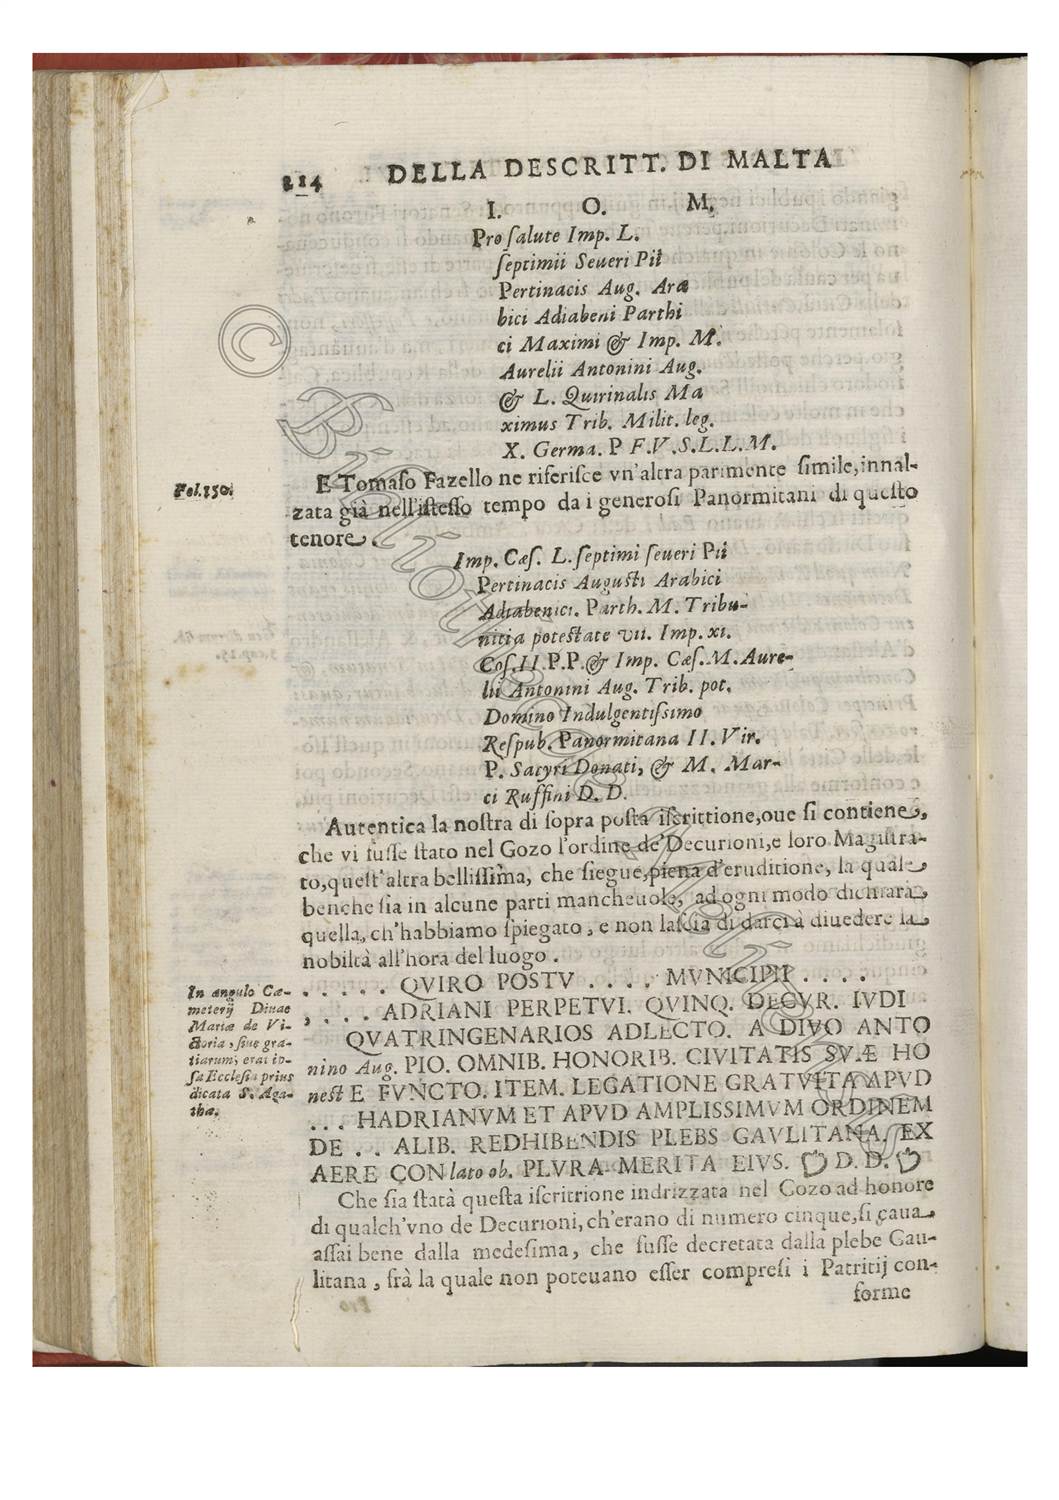 214 DELLA DESCRITT. DI MALTA
I. O. M.
Pro ſalute Imp. L.
ſeptimii Seueri Pii
Pertinacis Aug. Aræ
bici Adiabeni Parthi
ci Maximi & Imp. M.
Aurelii Antonini Aug.
& L. Quirinalis Ma
ximus Trib. Milit. leg.
X. Germa. P F.V.S.L.L.M.
Fol.150.
E Tomaſo Fazello ne riferiſce vn'altra parimente ſimile, innal-
zata già nell'iſteſſo tempo da i generoſi Panormitani di queſto
tenore.
Imp. Cæſ. L. ſeptimi ſeueri Pii
Pertinacis Auguſti Arabici
Adiabenici. Parth. M. Tribu-
nitia poteſtate vii. Imp. xi.
Coſ. II. P.P. & Imp. Cæſ. M. Aure-
lii Antonini Aug. Trib. pot.
Domino Indulgentiſſimo
Reſpub. Panormitana II. Vir.
P. Satyri Donati, & M. Mar-
ci Ruffini D. D.
Autentica la noſtra di ſopra poſta iſcrittione, oue ſi contiene,
che vi fuſſe ſtato nel Gozo l'ordine de' Decurioni, e loro Magiſtra-
to, queſt'altra belliſſima, che ſiegue, piena d'eruditione, la quale
benche ſia in alcune parti mancheuole, ad ogni modo dichiara
quella, ch'habbiamo ſpiegato, e non laſcia di darci à diuedere la
nobiltà all'hora del luogo.
In angulo Cæ-
meterij Diuae
Mariæ de Vi-
ctoria, ſiue gra-
tiarum, erat ib-
ſa Eccleſia prius
dicata S. Aga-
thæ.
. . . . . QVIRO POSTV . . . . MVNICIPII . . . .
, . . . ADRIANI PERPETVI. QVINQ. DECVR. IVDI
QVATRINGENARIOS ADLECTO. A DIVO ANTO
nino Aug. PIO. OMNIB. HONORIB. CIVITATIS SVÆ HO
neſt E FVNCTO. ITEM. LEGATIONE GRATVITA APVD
. . . HADRIANVM ET APVD AMPLISSIMVM ORDINEM
DE . . ALIB. REDHIBENDIS PLEBS GAVLITANA. EX
AERE CON lato ob. PLVRA MERITA EIVS. D. D.
Che ſia ſtatà queſta iſcrittione indrizzata nel Gozo ad honore
di qualch'vno de Decurioni, ch'erano di numero cinque, ſi caua
aſſai bene dalla medeſima, che fuſſe decretata dalla plebe Gau-
litana, frà la quale non poteuano eſſer compreſi i Patritij con-
forme
© Bibliotheca Hertziana